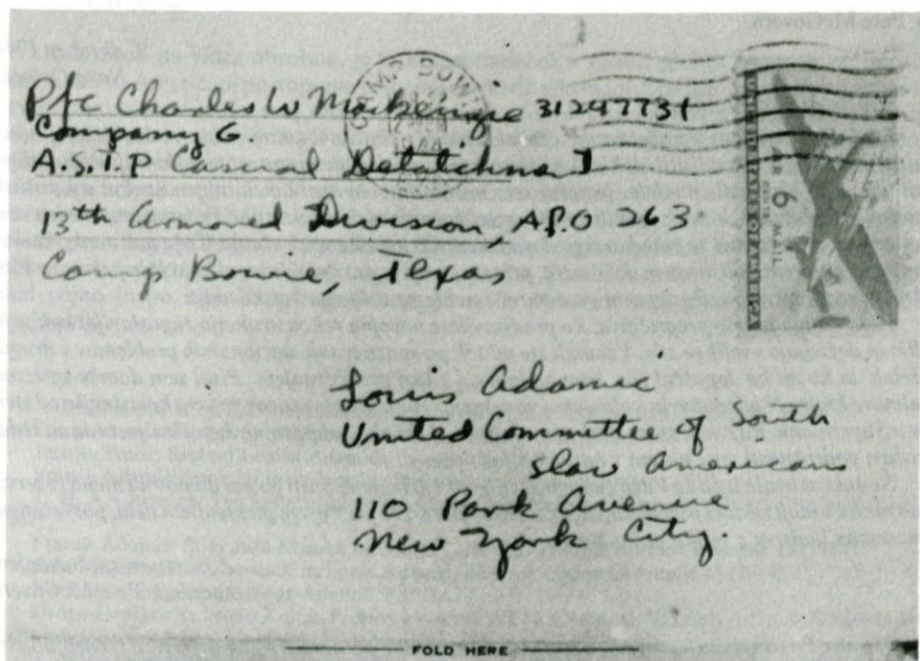 Pfc Charles W Mackenzie 31247731
Company G.
A.S.T.P Casual Detatchment
13th Armored Division, APO 263
Camp Bowie, Texas
AIR MAIL
6 CENTS
UNITED STATES OF AMERICA
Louis Adamic
United Committee of South
Slav Americans
110 Park Avenue
New York City.
FOLD HERE